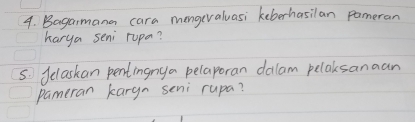 4. Bagaimana cara mengevaluasi keberhasilan pameran
karya seni rupa?
5. Jelaskan pentingnya pelaporan dalam pelaksanaan
pameran karya seni rupa?